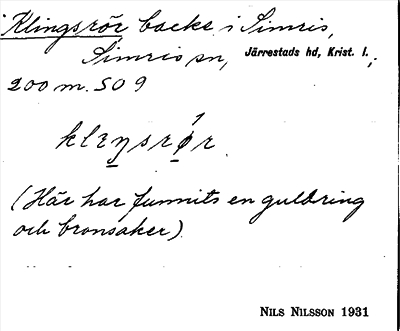 Klingsrör backe i Simris,
Simris sn, Järrestads hd, Krist. l.;
200 m. SO 9
klɛŋsrør
(Här har funnits en guldring
och bronsaker).
NILS NILSSON 1931